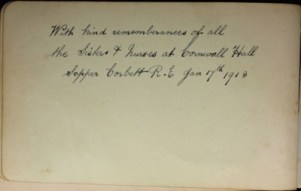 With kind remembrances of all
the Sisters & Nurses at Cornwall Hall
Sapper Corbett R.E Jan 17th 1918